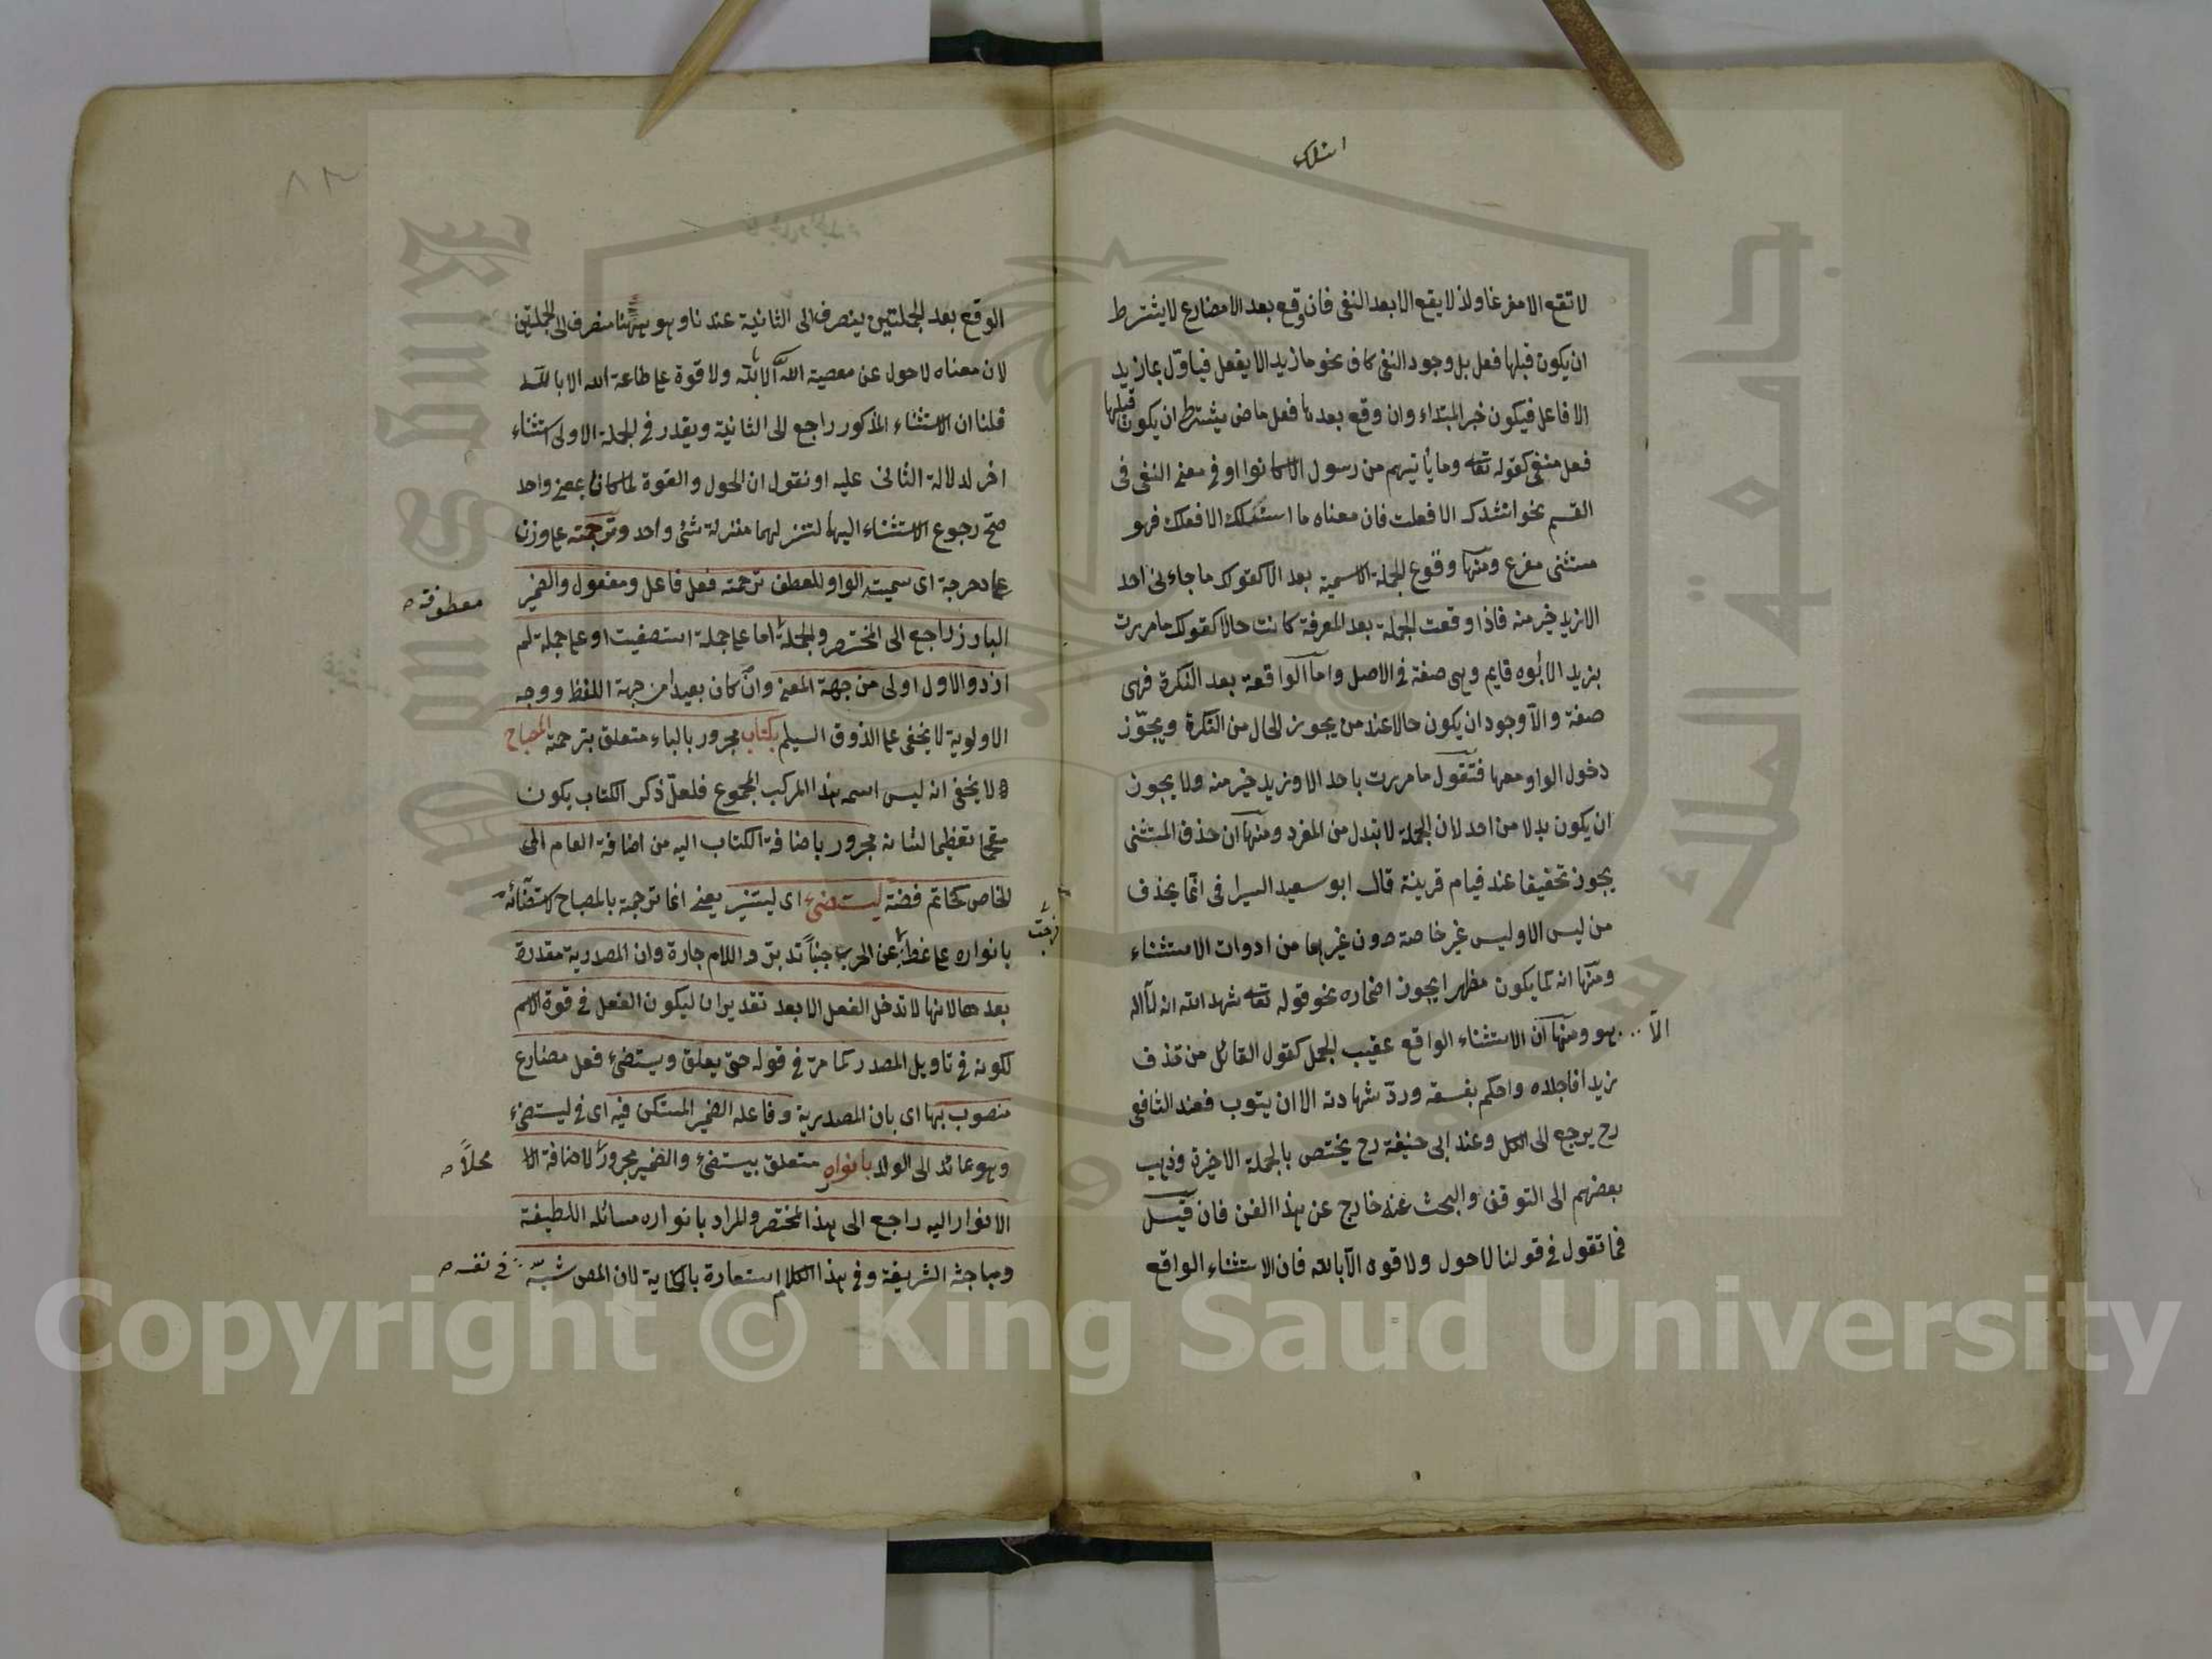 اسئلك
لا تقع الا مفرغا ولذ لا يقع الا بعد النفى فان وقع بعد الا مضارع لا يشترط
ان يكون قبلها فعل بل وجود النفى كاف نحو ما زيد الا يفعل فياوّل بما زيد
الا فاعل فيكون خبر المبتداء وان وقع بعدها فعل ماض يشترط ان يكون قبلها
فعل منفى كقوله تعالى وما يأتيهم من رسول الا كانوا او فى معنى النفى فى
القسم نحو انشدك الا فعلت فان معناه ما اسئلك الا فعلك فهو
مستثنى مفرغ ومنها وقوع الجملة الاسمية بعد الا كقولك ما جاءنى احد
الا زيد خير منه فاذا وقعت الجملة بعد المعرفة كانت حالا كقولك ما مررت
بزيد الا ابوه قايم وهى صفة فى الاصل واما الواقعة بعد النكرة فهى
صفة والا وجود ان يكون حالا عند من يجوز الحال من النكرة ويجوّز
دخول الواو معها فتقول ما مررت باحد الا وزيد خير منه ولا يجوز
ان يكون بدلا من احد لان الجملة لا تبدل من المفرد ومنها ان حذف المستثنى
يجوز تخفيفا عند قيام قرينة قال ابو سعيد السيرافى انما يحذف
من ليس الا وليس غير خاصة دون غيرها من ادوات الاستثناء
ومنها انه كما يكون مظهرا يجوز اضماره نحو قوله تعالى شهد الله انه لا اله
الا هو ومنها ان الاستثناء الواقع عقيب الجمل كقول القائل من قذف
زيدا فاجلده واحكم بفسقه وردّ شهادته الا ان يتوب فعند الشافعى
رح يرجع الى الكل وعند ابى حنيفة رح يختص بالجملة الاخيرة وذهب
بعضهم الى التوقف والبحث عنه خارج عن هذا الفن فان قيل
فما تقول فى قولنا لا حول ولا قوة الا بالله فان الاستثناء الواقع
٨٢
الوقع بعد الجملتين ينصرف الى الثانية عندنا وهو ههنا منصرف الى الجملتين
لان معناه لا حول عن معصية الله الا بالله ولا قوة على طاعة الله الا بالله
قلنا ان الاستثناء المذكور راجع الى الثانية ويقدر فى الجملة الاولى استثناء
اخر لدلالة الثانى عليه او نقول ان الحول والقوة لما كانا بمعنى واحد
صح رجوع الاستثناء اليها لتنزلهما منزلة شئ واحد وترجمته على وزن
على دحرجة اى سميته الواو للعطف ترجمته فعل فاعل ومفعول والضمير
معطوفة
البارز راجع الى المختصر والجملة اما على جملة استصفيت او على جملة لم
ازد والاول اولى من جهة المعنى وان كان بعيدا من جهة اللفظ ووجه
الاولوية لا يخفى على الذوق السليم بكتاب مجرور بالباء متعلق بترجمته المصباح
ولا يخفى انه ليس اسمه هذا المركب المجموع فلعل ذكر الكتاب يكون
مقحما تعظيما لشانه مجرور باضافة الكتاب اليه من اضافة العام الى
الخاص كخاتم فضة ليستضئ اى ليستنير يعنى انما ترجمته بالمصباح لاستضائه
بانواره على غطائه عن الحرب جنبا تدبر واللام جارة وان المصدرية مقدرة
بعدها لانها لا تدخل الفعل الا بعد تقدير ان ليكون الفعل فى قوة الاسم
لكونه فى تاويل المصدر كما مرّ فى قوله حتى يعلق ويستضئ فعل مضارع
منصوب بها اى بان المصدرية وفاعله الضمير المستكن فيه اى فى ليستضئ
وهو عائد الى الولد بانواره متعلق بيستضئ والضمير مجرور لاضافة الا
محلاً
الانوار اليه راجع الى هذا المختصر والمراد بانواره مسائله اللطيفة
ومباحثه الشريفة وفى هذا الكلام استعارة بالكناية لان المص شبّه
فى نفسه
Copyright © King Saud University
جامعة الملك سعود
King Saud University
1957